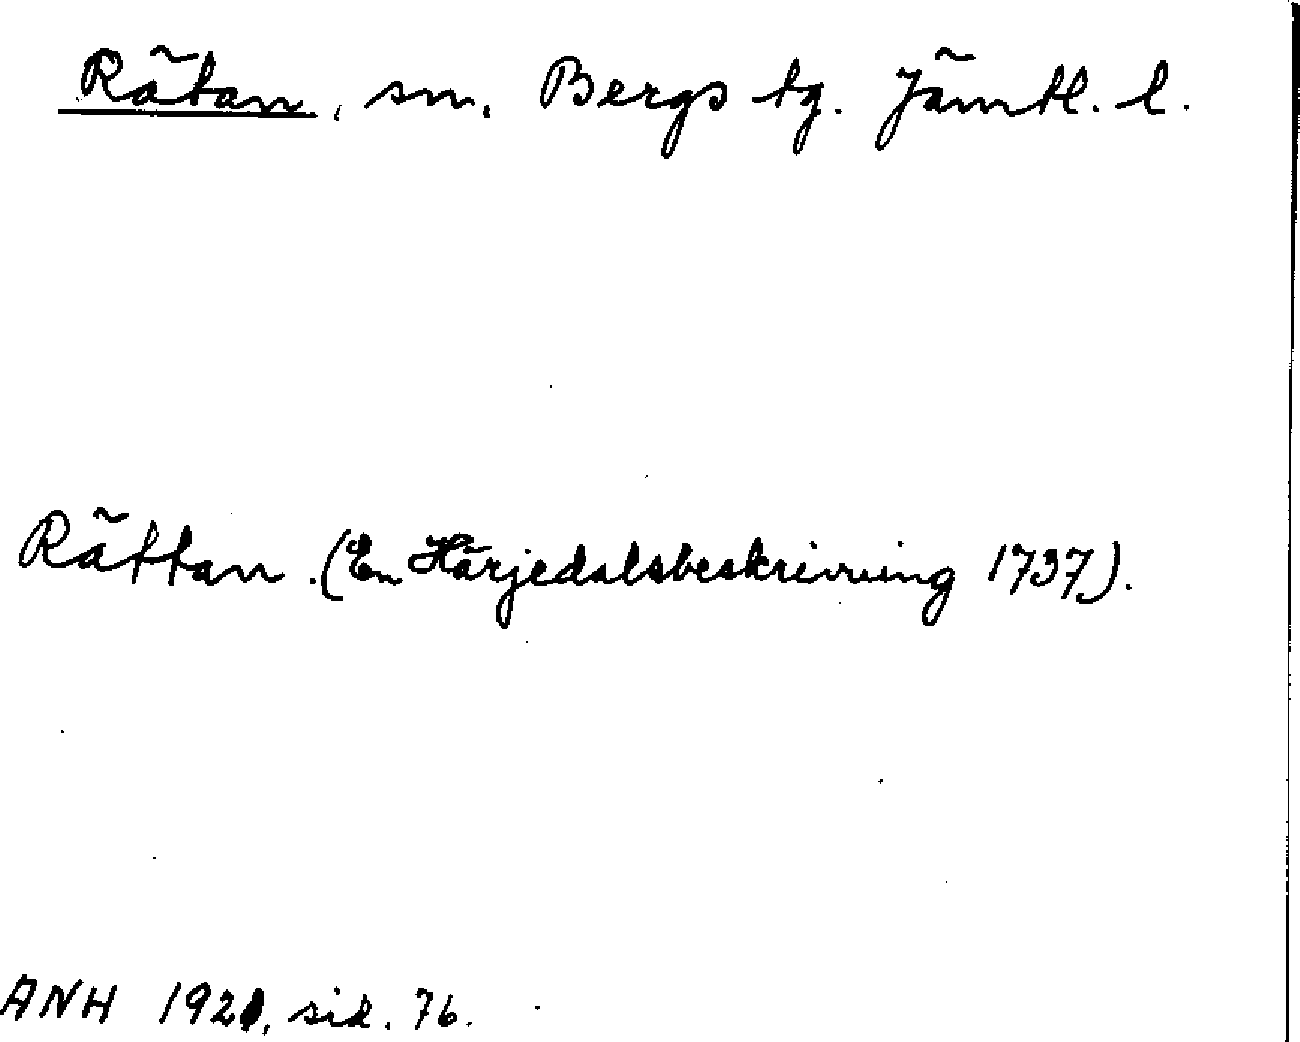 Rätan, sn, Bergs tg. Jämtl. l.
Rättan. (En Härjedalsbeskrivning 1737).
ANH 1921, sid. 76.